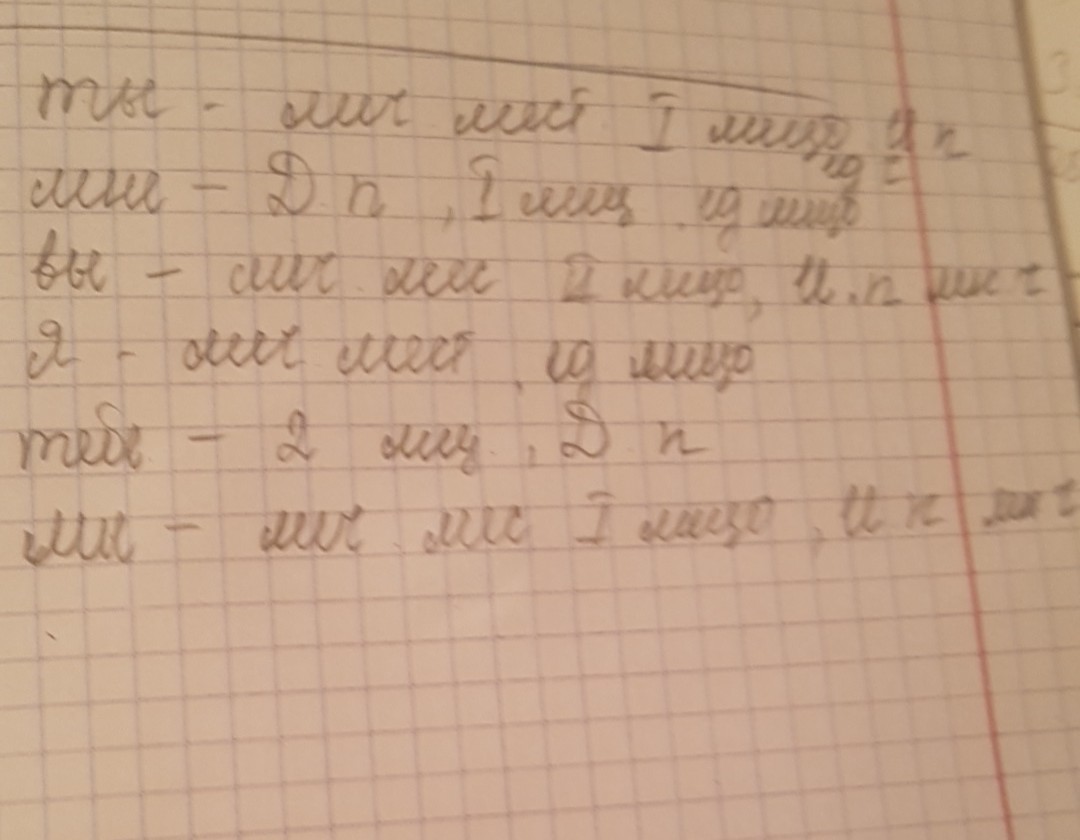 ты - лич мест I лицо И п
ед ч
мы - Д п , I лиц ед лицо
вы - лич. мес II лицо, И. п мн ч
Я - лич мест , ед лицо
тебе - 2 лиц. , Д п
мы - лич. мес I лицо , И п мн ч